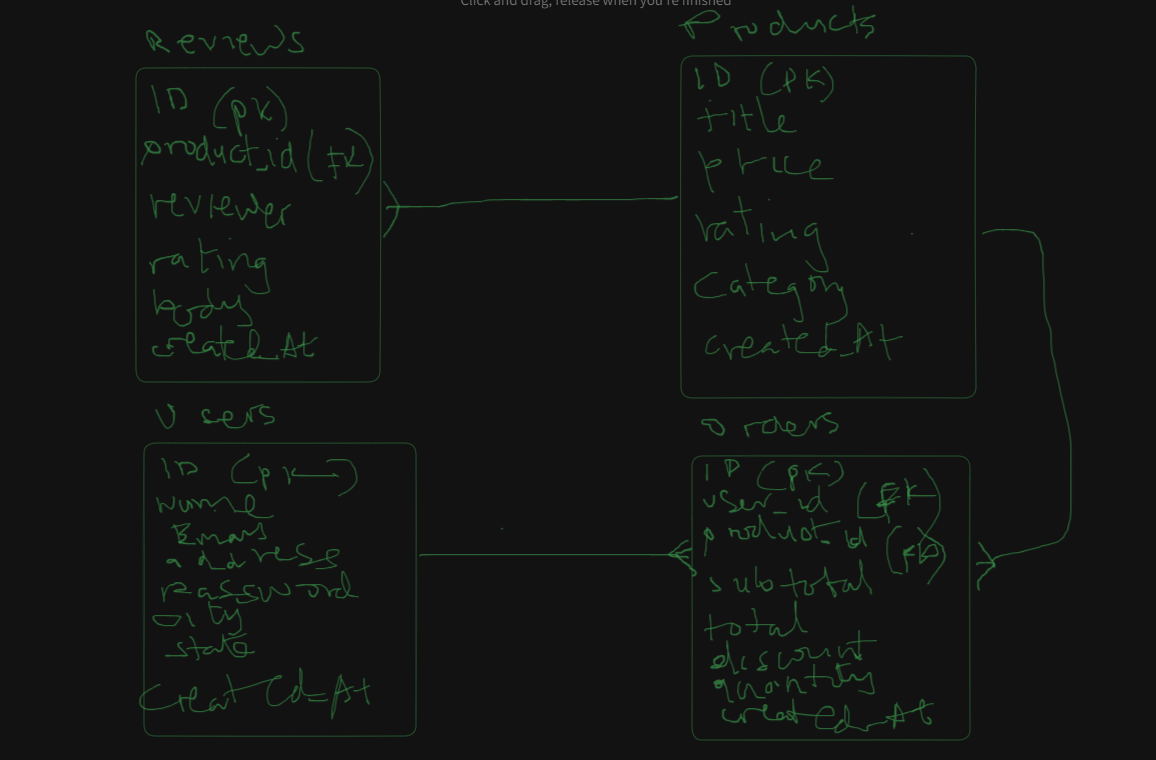 Click and drag, release when you're finished
Reviews
ID (pk)
product_id (FK)
reviewer
rating
body
created_At
Products
ID (PK)
title
price
rating
Category
created_At
Users
ID (pk)
Name
Email
address
Password
city
state
Created_At
Orders
ID (pk)
user_id (FK)
product_id (FK)
subtotal
total
discount
quantity
created_At